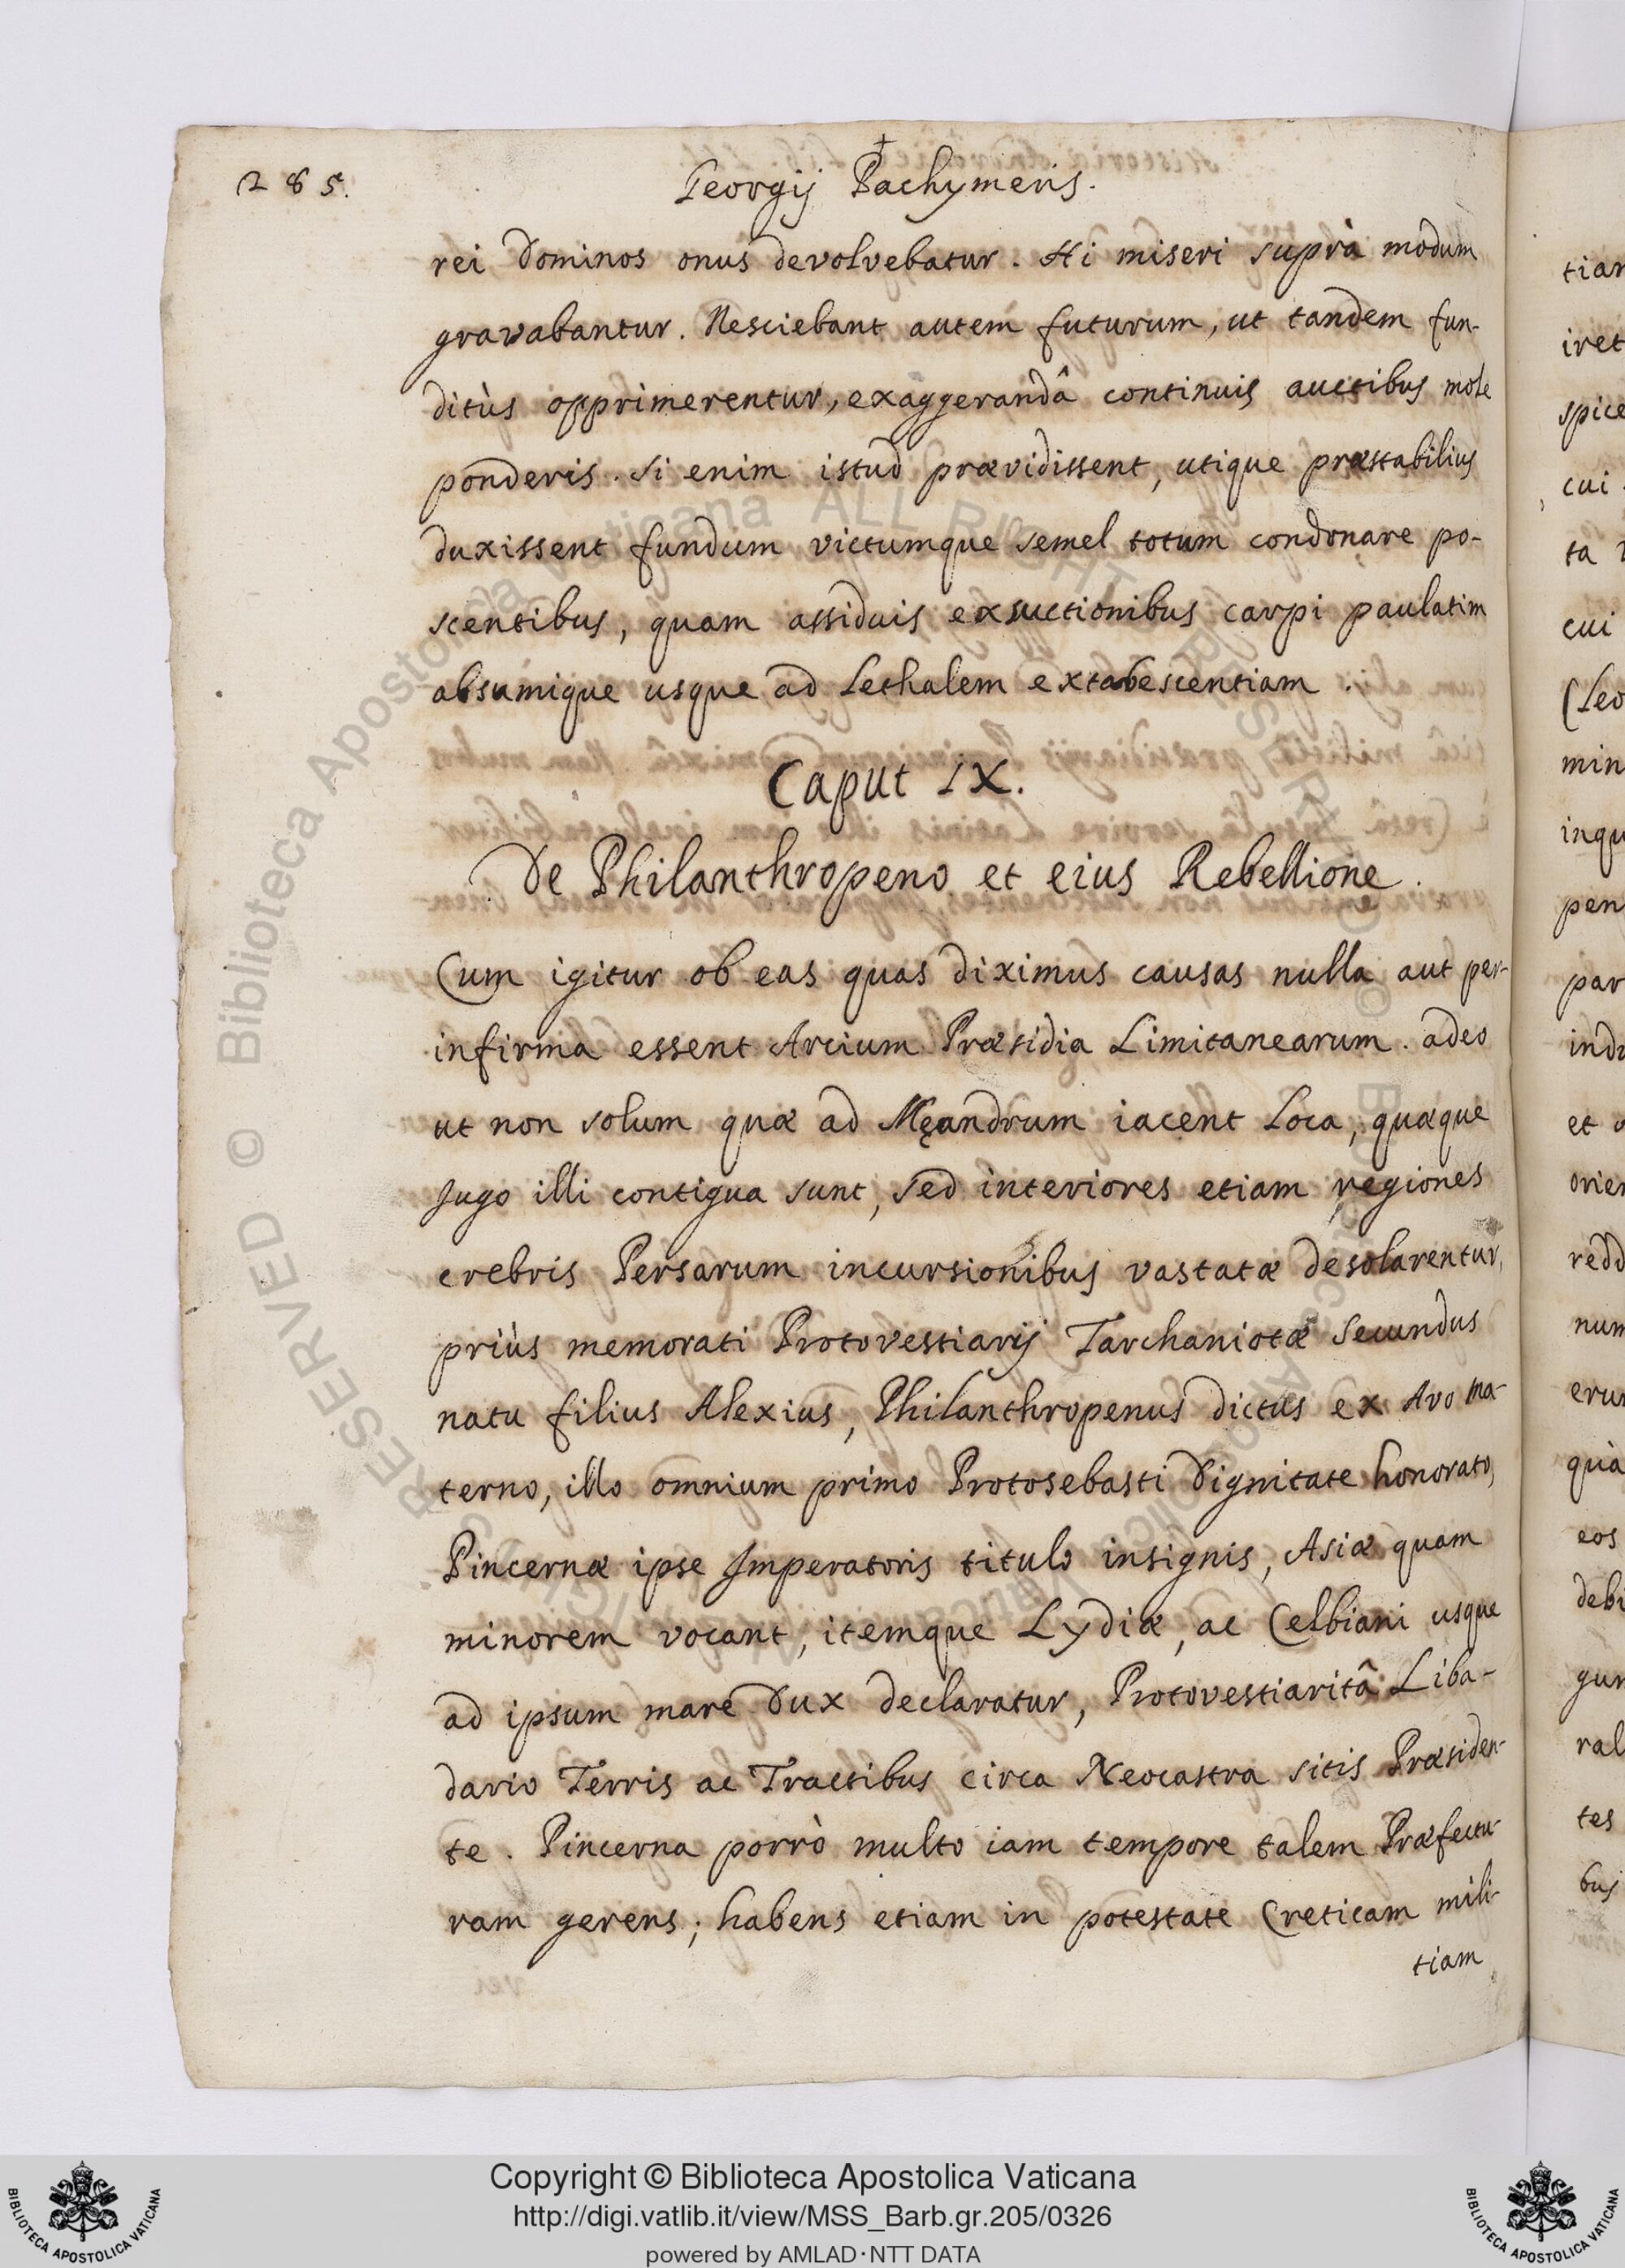 285.
Georgij Pachymeris.
rei Dominos onus devolvebatur. Hi miseri suprà modum
gravabantur. Nesciebant autem futurum, ut tandem fun-
ditùs opprimerentur, exaggerandâ continuis auctibus mole
ponderis. Si enim istud prævidissent, utique præstabilius
duxissent fundum victumque semel totum condonare po-
scentibus, quam assiduis exsuctionibus carpi paulatim
absumique usque ad Lethalem extabescentiam.
Caput IX.
De Philanthropeno et eius Rebellione.
Cum igitur ob eas quas diximus causas nulla aut per-
infirma essent Arcium Præsidia Limitanearum. adeo
ut non solum quæ ad Męandrum iacent Loca, quæque
Jugo illi contigua sunt, sed interiores etiam regiones
crebris Persarum incursionibus vastatæ desolarentur,
priùs memorati Protovestiarij Tarchaniotæ Secundus
natu filius Alexius, Philanthropenus dictus ex Avo ma-
terno, illo omnium primo Protosebasti Dignitate honorato,
Pincernæ ipse Imperatoris titulo insignis, Asiæ quam
minorem vocant, itemque Lydiæ, ac Celbiani usque
ad ipsum mare Dux declaratur, Protovestiaritâ Liba-
dario Terris ac Tractibus circa Neocastra sitis Præsiden-
te. Pincerna porrò multo iam tempore talem Præfectu-
ram gerens; habens etiam in potestate Creticam mili-
tiam
tiar
iret
spice
cui
ta
cui
(Leo
min
inqu
pen
par
indu
et
orien
redd
num
erun
quà
eos
debi
gun
ral
tes
bus
© Biblioteca Apostolica Vaticana ALL RIGHTS RESERVED
Copyright © Biblioteca Apostolica Vaticana
http://digi.vatlib.it/view/MSS_Barb.gr.205/0326
powered by AMLAD·NTT DATA
BIBLIOTECA APOSTOLICA VATICANA
BIBLIOTECA APOSTOLICA VATICANA